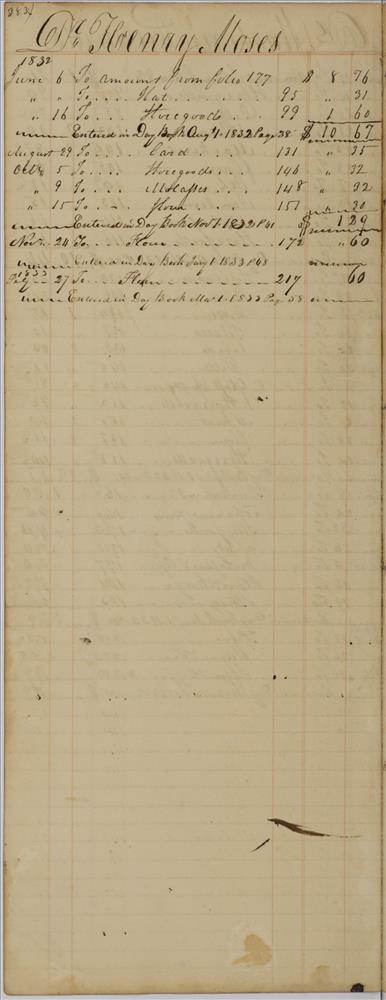 283
Dr. Henry Moses
1832
June 6 To amount from folio 177 $ 8 76
" " To .... Hat ....... 95 " 31
" 16 To ... Storegoods .. 99 1 60
Entered in Day Book Aug 1. 1832 Page 38 $ 10 67
August 29 To .... Card .... 131 " 35
Octr 5 To .... Storegoods ... 146 " 32
" 9 To .... Molasses ... 148 " 32
" 15 To .... Flour .... 151 " 30
Entered in Day Book Nov 1. 1832 P 41 $ 1 29
Novr. 24 To ... Flour ....... 172 " 60
Entered in Day Book Jany 1. 1833 P 48
1833
Feby 27 To ... Flour ....... 217 60
Entered in Day Book Mar 1. 1833 Page 58